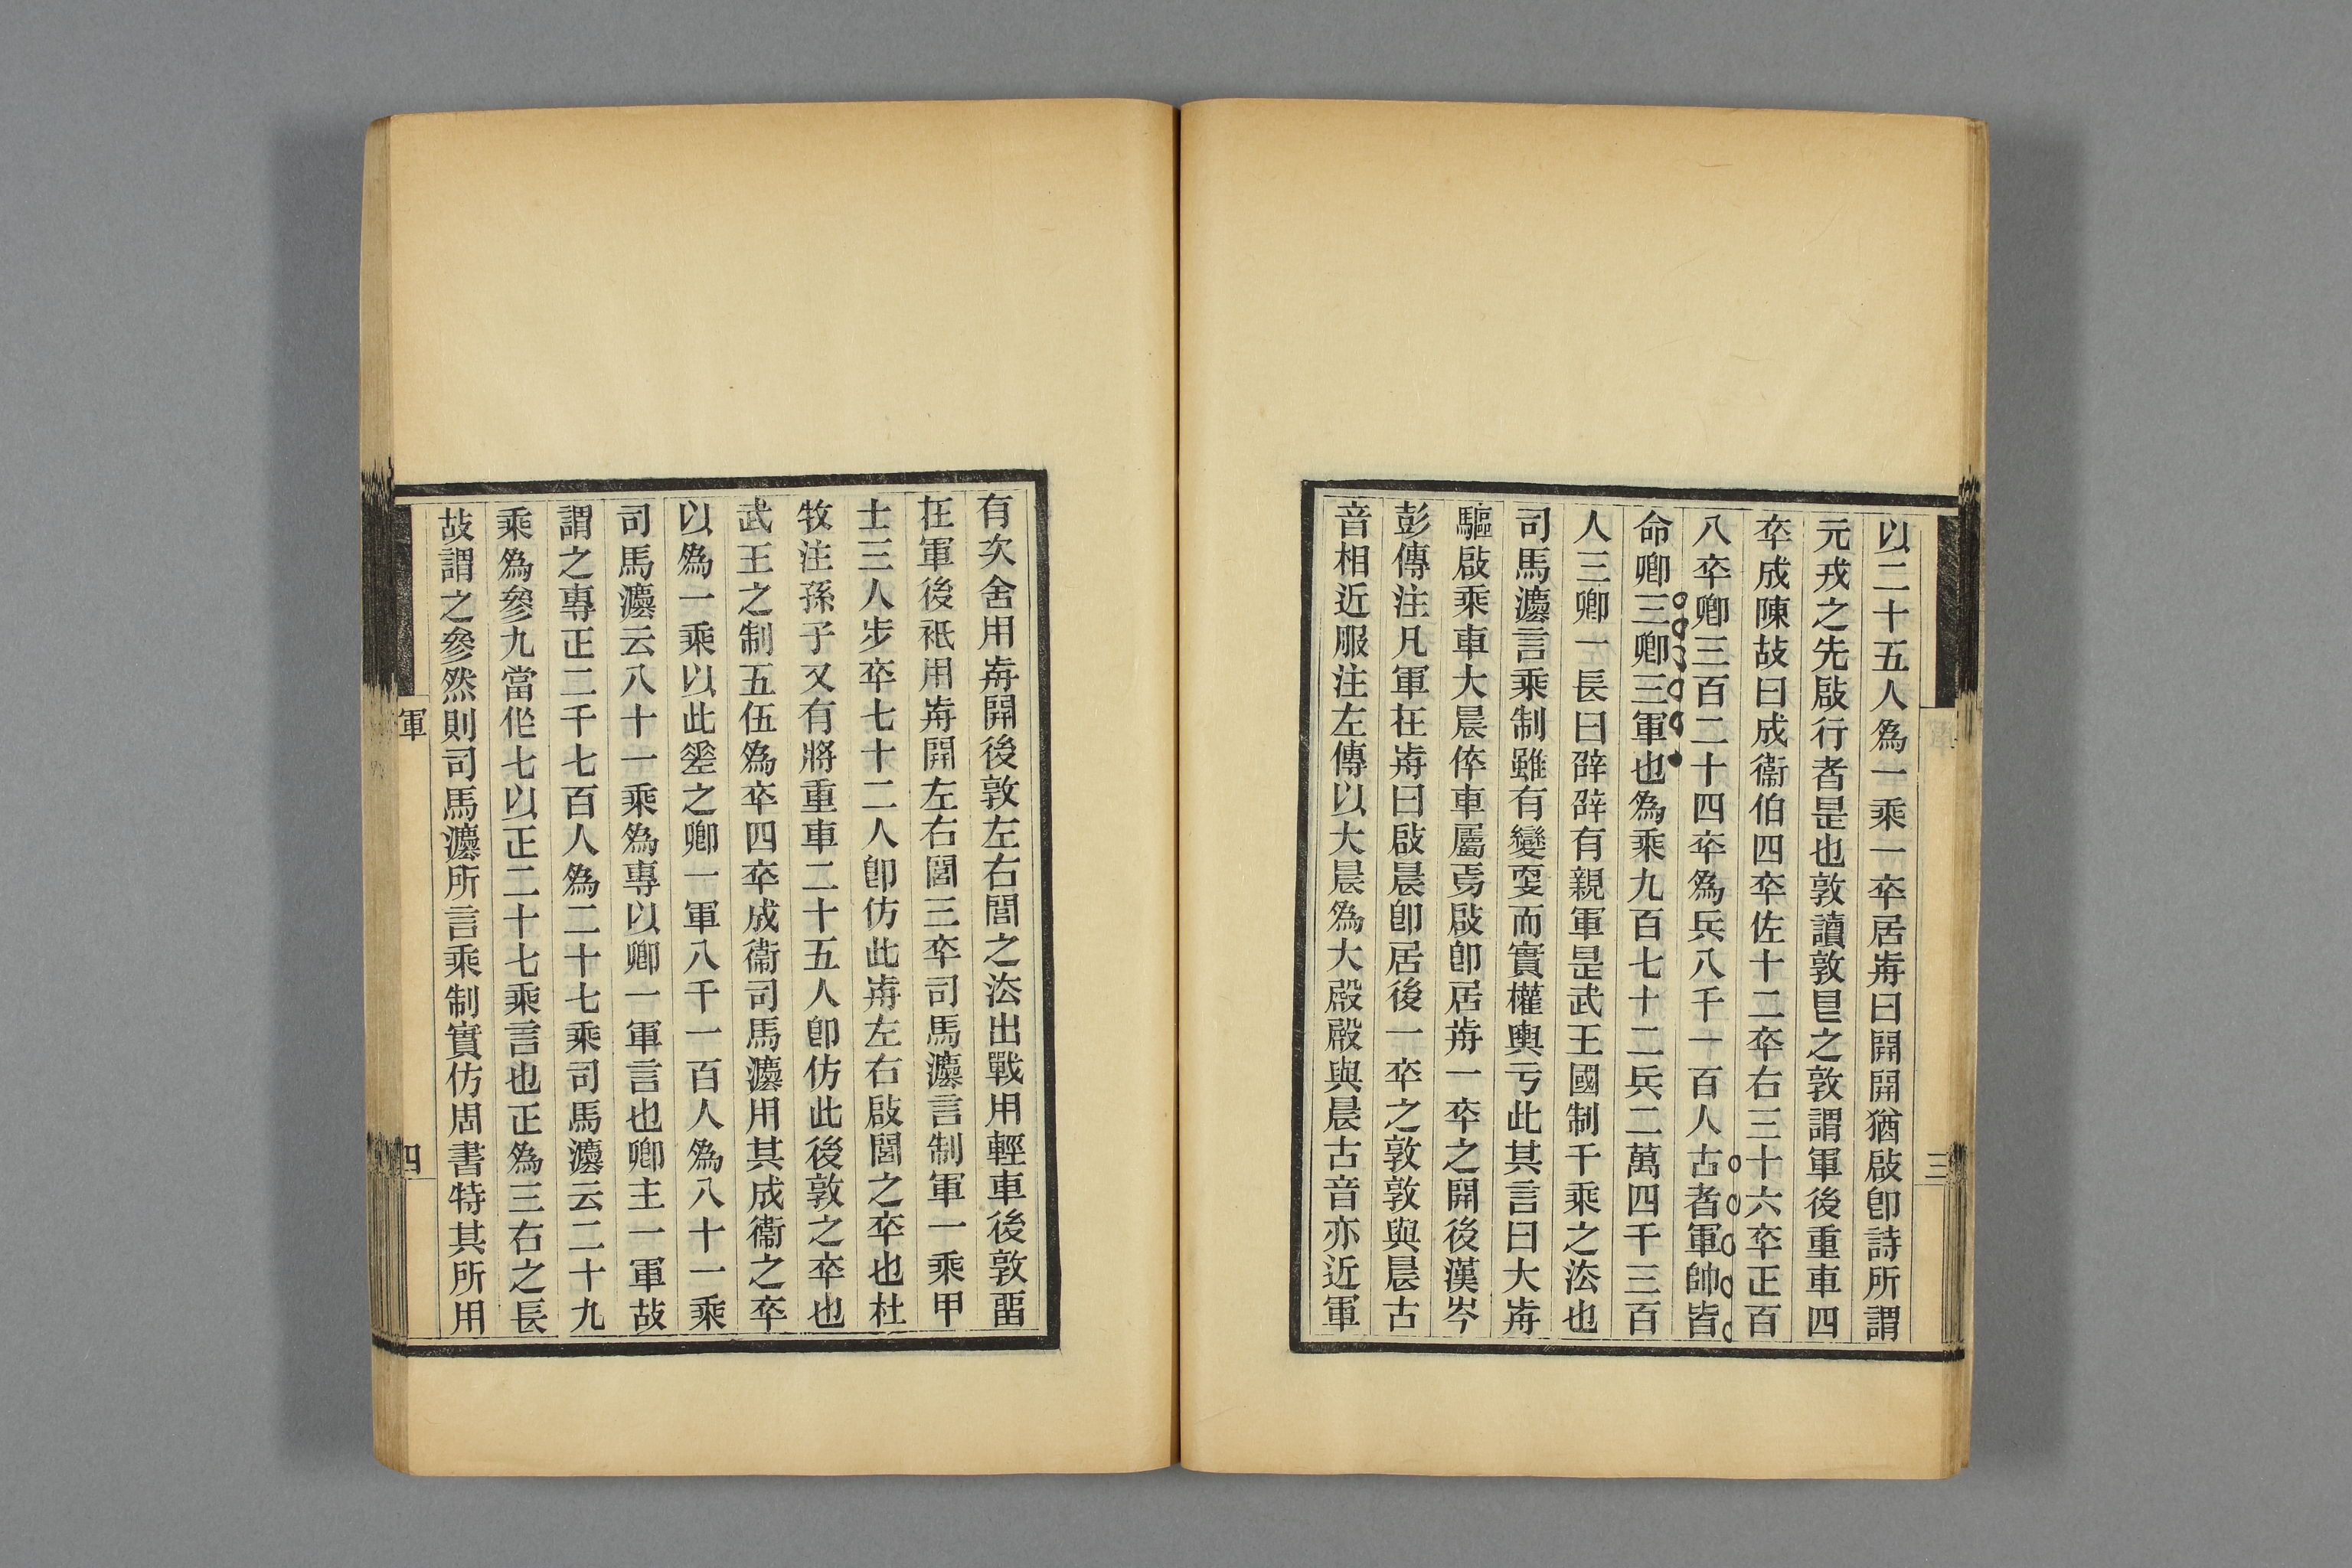 以二十五人爲一乘一卒居歬曰開開猶啟卽詩所謂
元戎之先啟行者是也敦讀敦㫗之敦謂軍後重車四
卒成陳故曰成衞伯四卒佐十二卒右三十六卒正百
八卒卿三百二十四卒爲兵八千一百人古者軍帥皆
命卿三卿三軍也爲乘九百七十二兵二萬四千三百
人三卿一長曰辟辟有親軍是武王國制千乘之法也
司馬灋言乘制雖有變㪅而實權輿亏此其言曰大歬
驅啟乘車大晨倅車屬焉啟卽居歬一卒之開後漢岑
彭傳注凡軍在歬曰啟晨卽居後一卒之敦敦與晨古
音相近服注左傳以大晨爲大殿殿與晨古音亦近軍
三
有次舍用歬開後敦左右閭之法出戰用輕車後敦畱
在軍後祇用歬開左右閭三卒司馬灋言制軍一乘甲
士三人步卒七十二人卽仿此歬左右啟閭之卒也杜
牧注孫子又有將重車二十五人卽仿此後敦之卒也
武王之制五伍爲卒四卒成衞司馬灋用其成衞之卒
以爲一乘以此差之卿一軍八千一百人爲八十一乘
司馬灋云八十一乘爲專以卿一軍言也卿主一軍故
謂之專正二千七百人爲二十七乘司馬灋云二十九
乘爲參九當作七以正二十七乘言也正爲三右之長
故謂之參然則司馬灋所言乘制實仿周書特其所用
軍
四